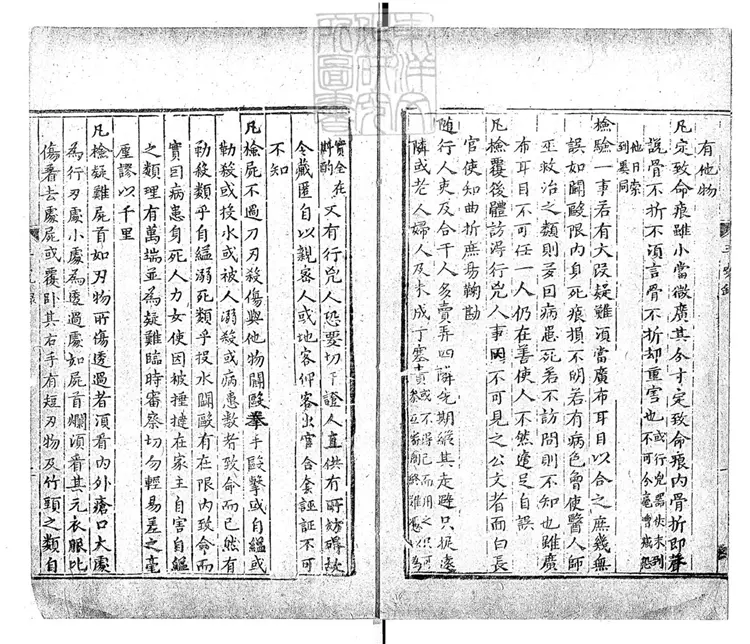 有他物
凡定致命痕雖小當微廣其分寸定致命痕內骨折即聲
說骨不折不須言骨不折却重害也或行兇器仗未到不可分毫增減恐他日索到異同
檢驗一事若有大段疑難須當廣布耳目以合之庶幾無
誤如鬪毆限內身死痕損不明若有病色曾使醫人師
巫救治之類則多因病患死若不訪問則不知也雖廣
布耳目不可任一人仍在善使人不然適足自誤
凡檢覆後體訪得行兇人事因不可見之公文者面白長
官使知曲折庶易鞠勘
隨行人吏及合干人多賣弄四鄰先期縱其走避只捉遠
隣或老人婦人及未成丁塞責或不得已而用之只可為參互審問終難憑以為
實全在斟酌又有行兇人恐要切干證人直供有所妨礙故
令藏匿自以親密人或地客佃客出官合套誣証不可
不知
凡檢屍不過刀刃殺傷與他物鬪毆拳手毆擊或自縊或
勒殺或投水或被人溺殺或病患數者致命而已然有
勒殺類乎自縊溺死類乎投水鬪毆有在限內致命而
實因病患身死人力女使因被捶撻在家主自害自縊
之類理有萬端並為疑難臨時審察切勿輕易差之毫
厘謬以千里
凡檢疑難屍首如刃物所傷透過者須看內外瘡口大處
為行刃處小處為透過處如屍首爛須看其元衣服比
傷著去處屍或覆卧其右手有短刃物及竹頭之類自